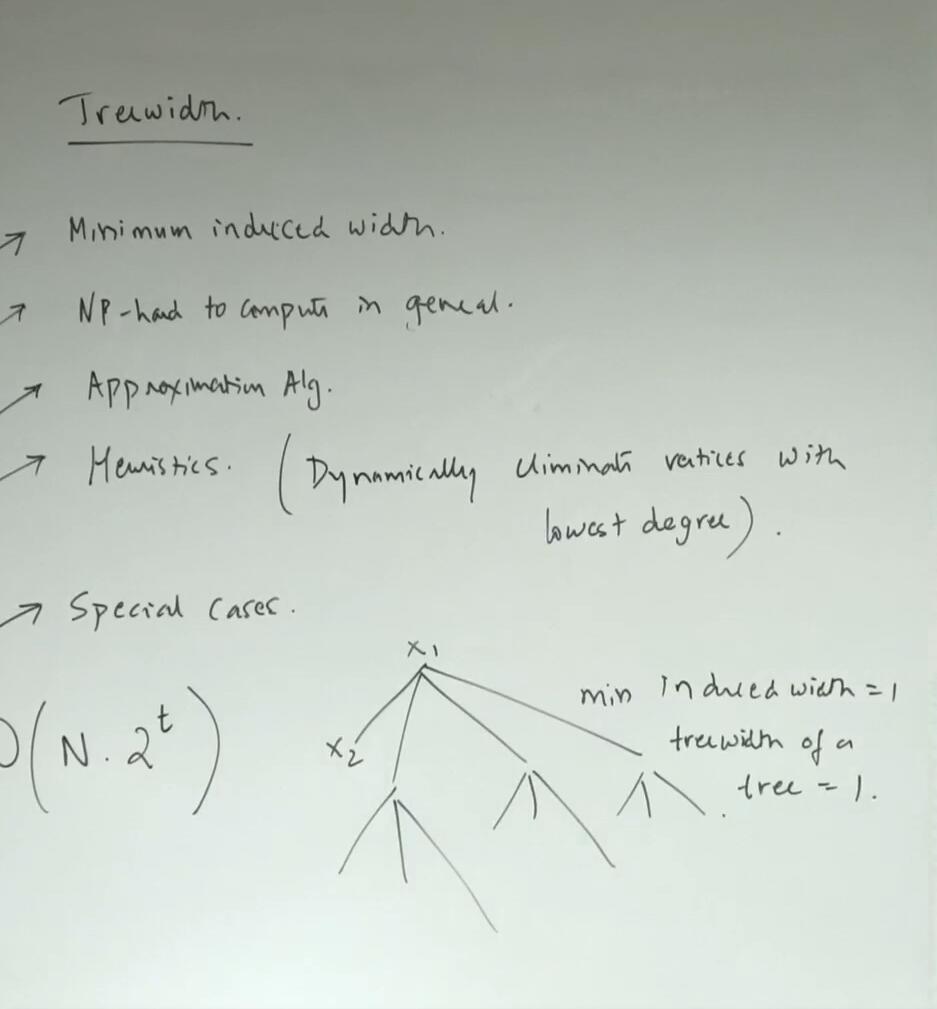 Treewidth.
→ Minimum induced width.
→ NP-hard to compute in general.
→ Approximation Alg.
→ Heuristics. (Dynamically eliminate vertices with
lowest degree).
→ Special cases.
x1
min induced width = 1
O(N · 2^t)
x2
treewidth of a
tree = 1.